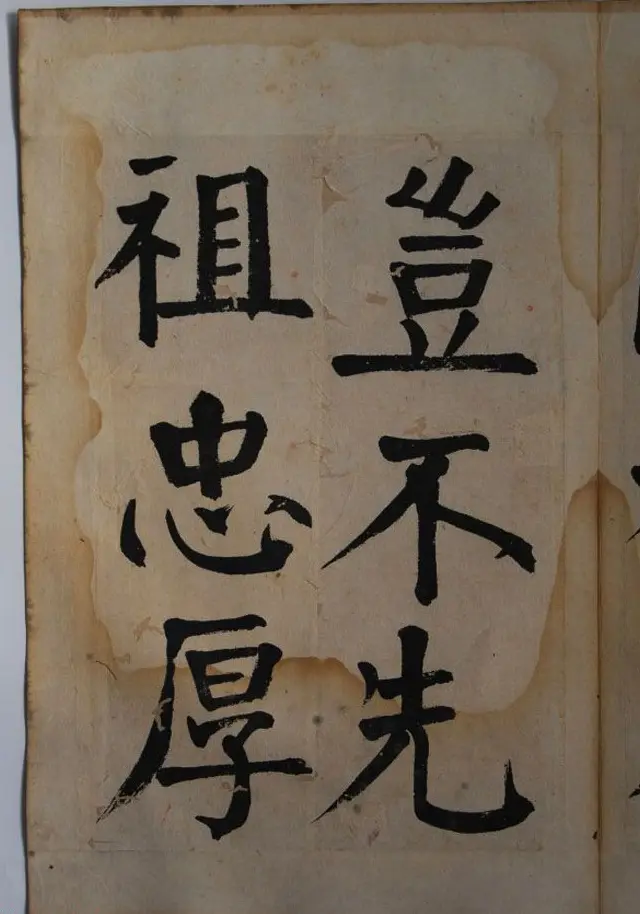 豈不先
祖忠厚